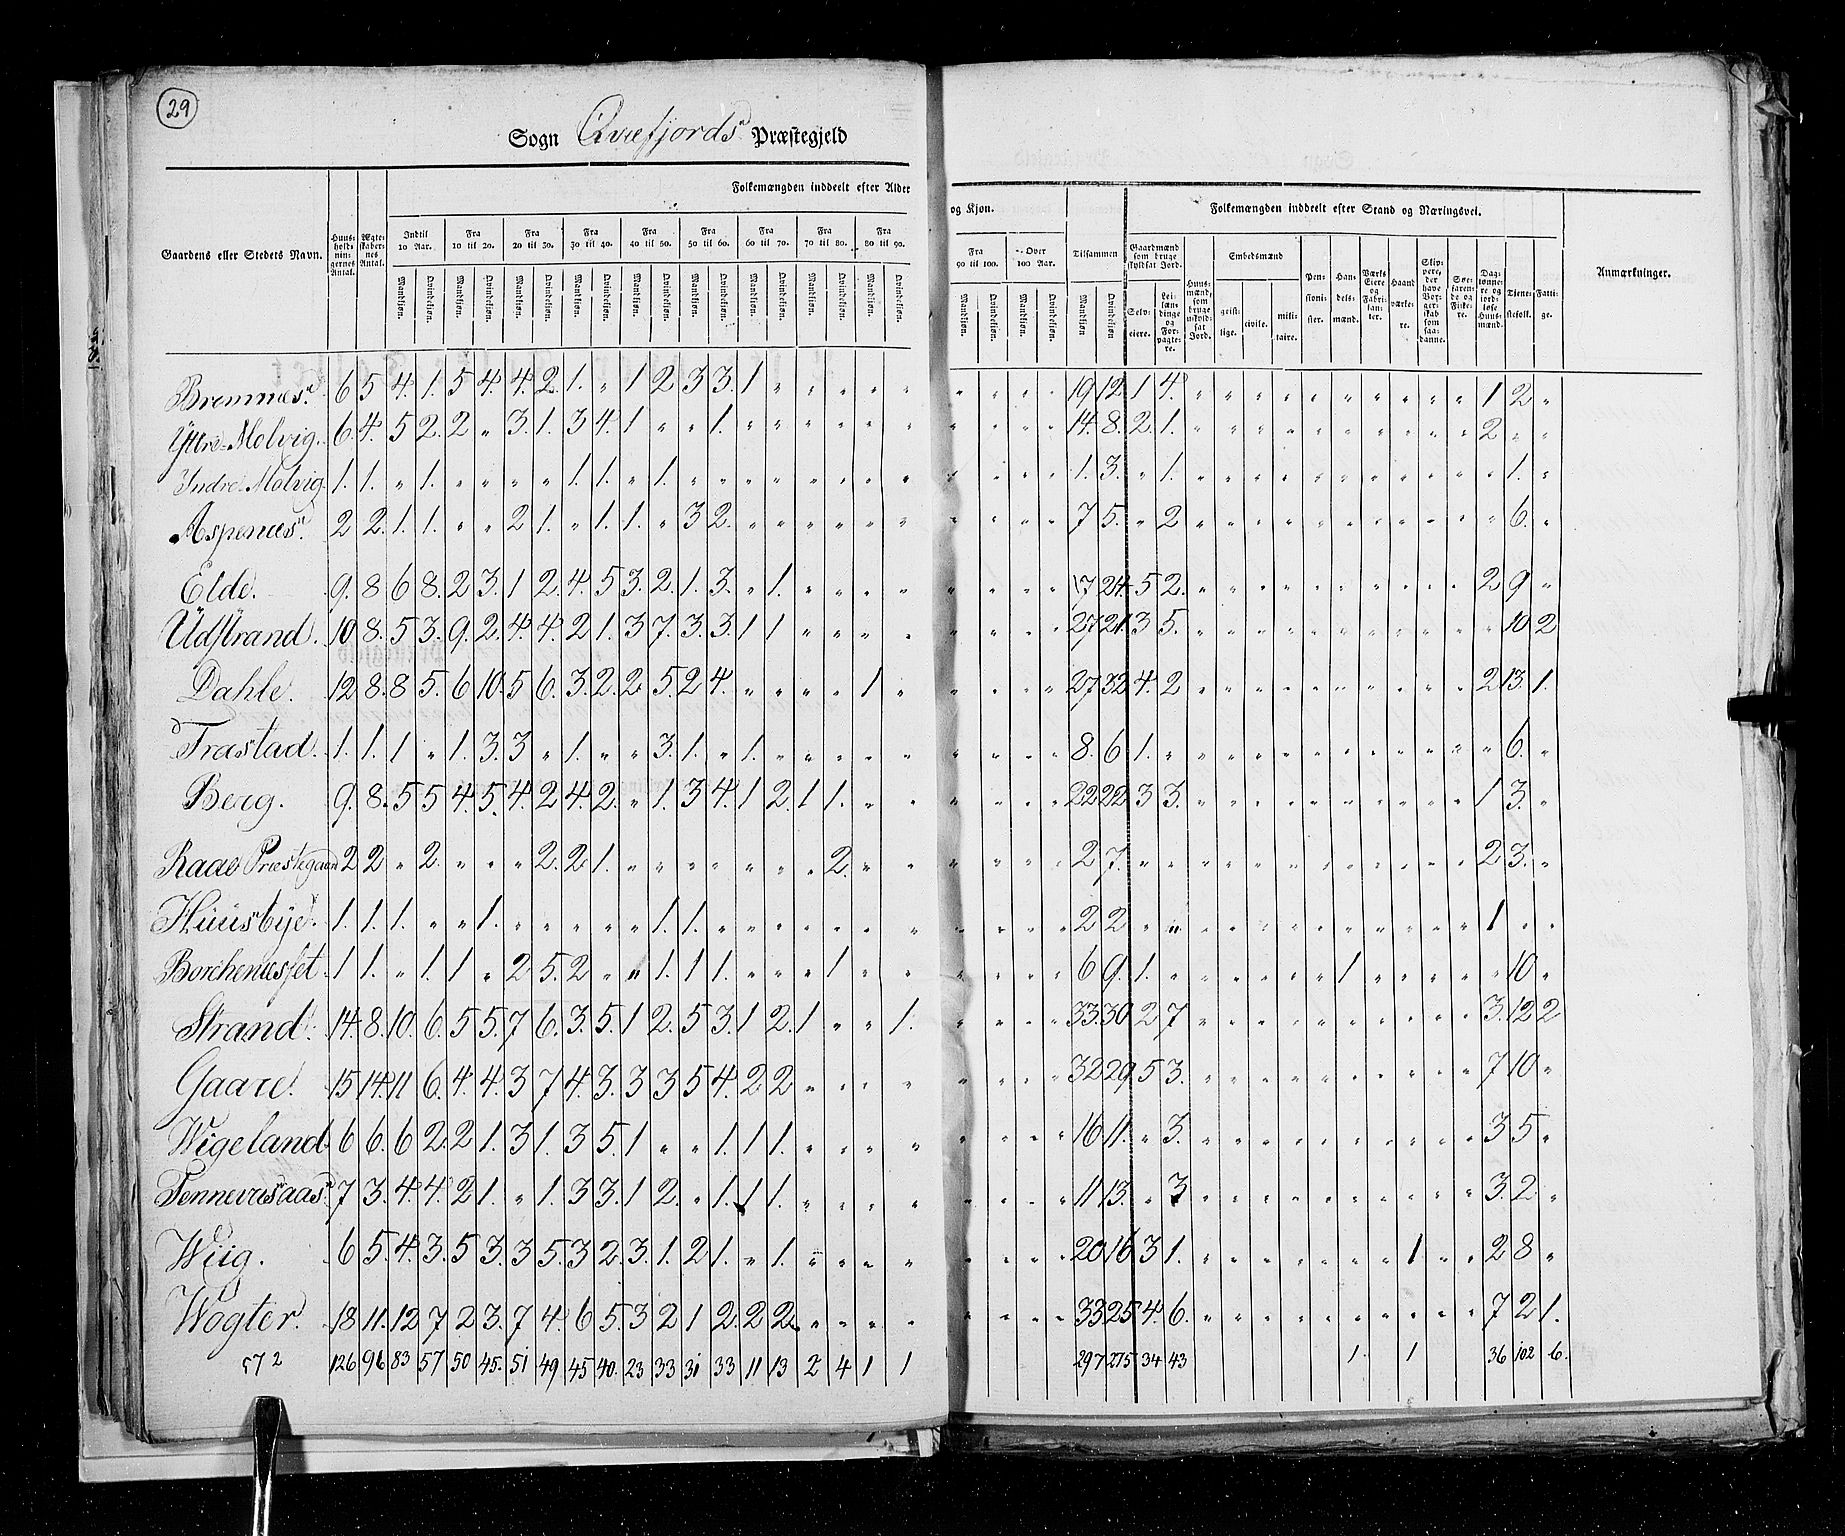 29
Sogn Qvæfjords Præstegjeld
Folkemængden inddeelt efter Alder og Kjøn. Folkemængden inddeelt efter Stand og Næringsvei.
Gaardens eller Stedets Navn. Huusholdningernes Antal. Ægteskabernes Antal. Indtil 10 Aar. Fra 10 til 20. Fra 20 til 30. Fra 30 til 40. Fra 40 til 50. Fra 50 til 60. Fra 60 til 70. Fra 70 til 80. Fra 80 til 90. Fra 90 til 100. Over 100 Aar. Tilsammen Gaardmænd som bruge skyldsat Jord. Huusmænd, som bruge uskyldsat Jord. Embedsmænd Pensionister. Handelsmænd. Værks Eiere og Fabrikanter. Haandværkere. Skippere, der have Borgerskab som saadanne. Søefarende og Fiskere. Daglønnere og jordløse Huusmænd. Tjenestefolk. Fattige. Anmærkninger.
Mandkjøn. Qvindekjøn. Mandkjøn. Qvindekjøn. Mandkjøn. Qvindekjøn. Mandkjøn. Qvindekjøn. Mandkjøn. Qvindekjøn. Mandkjøn. Qvindekjøn. Mandkjøn. Qvindekjøn. Mandkjøn. Qvindekjøn. Mandkjøn. Qvindekjøn. Mandkjøn. Qvindekjøn. Mandkjøn. Qvindekjøn. Mandkjøn Qvindekjøn Selveiere. Leilændinge og Forpagtere. geistlige. civile. militaire.
Bremnæs. 6 5 4. 1. 5 4. 4. 2 1. " 1 2 3 3. 1 " " " " " " " " " 19 12 1 4. " " " " " " " " " " 1 2 "
Yttre-Molvig. 6. 4. 5 2. 2 " 3. 1. 3 4. 1 " " 1. " " " " " " " " " " 14. 8. 2. 1. " " " " " " " " " " 2 " "
Indre-Molvig. 1. 1. " 1. " " " " 1. 1. " 1. " " " " " " " " " " " " 1. 3. " 1. " " " " " " " " " " " 1. "
Aspenæs. 2 2. 1. 1. " " 2 1. " 1. 1. " 3 2. " " " " " " " " " " 7 5. " 2 " " " " " " " " " " " 6. "
Elde. 9. 8 6 8. 2 3. 1 2. 4. 5 3. 2. 1. 3. " 1. " " " " " " " " 17 24 5 2. " " " " " " " " " " 2 9 "
Udstrand. 10 8. 5 3. 9. 2. 4. 4. 2 1. 3 7. 3. 3. 1 1 " " " " " " " " 27 21. 3 5. " " " " " " " " " " " 10 2
Dahle. 12 8. 8 5. 6 10. 5 6. 3. 2. 2 5. 2 4. " " " " 1 " " " " " 27 32 4. 2 " " " " " " " " " " 2 13. 1.
Trastad. 1. 1. 1 " 1. 3. 3 " 1. " " 3. 1. " 1. " " " " " " " " " 8. 6 1. " " " " " " " " " " " " 6. "
Berg. 9. 8. 5 5 4. 5. 4. 2 4. 2. " 1. 3 4. 1 2. 1 1. " " " " " " 22 22 3 3. " " " " " " " " " " 1 3. "
Raae Præstegaard 2 2 " 2. " " " 2. 2 1. " " " " " " " 2. " " " " " " 2 7. " " " " " " " " " " " " 2 3. "
Huusbye. 1. 1. 1. " " 1. " " " " " 1. 1. " " " " " " " " " " " 2 2 " " " " " " " " " " " " 1 " "
Borchenæsset 1 1. " 1. 1 " 2 5. 2 " " 1. 1 1. " " " 1 " " " " " " 6 9. 1. " " " " " " 1 " " " " " 10 "
Strand. 14. 8. 10. 6. 5 5. 7 6. 3. 5. 1 2. 5 3. 1 2. 1 " " 1. " " " " 33. 30 2 7 " " " " " " " " " " 3. 12 2
Gaare. 15 14. 11 6. 4. 4. 3 7 4. 3. 3 3 5 4. 2 2 " " " " " " " " 32 29 5 3. " " " " " " " " " " 7 10 "
Wigeland 6 6. 6 2. 2 1. 3 1. 3 5. 1 " " 1. 1 1. " " " " " " " " 16 11. " 3. " " " " " " " " " " 3 5 "
Tennevasaas. 7 3. 4. 4. 2 1. " 1. 3 3. 1 2. " 1. 1 1. " " " " " " " " 11 13. " 3 " " " " " " " " " " 3. 2. "
Wiig. 6 5. 4. 3. 5 3. 3 5. 3 2. 3. 1. 2 1. " 1. " " " " " " " " 20 16 3 1. " " " " " " " 1 " " 2 8 "
Wogter. 18 11. 12 7 2 3. 7 4. 6 5. 3 2 1 2. 2 2. " " " " " " " " 33 25 4. 6. " " " " " " " " " " 7 2 1.
572 126 96 83 57 50 45. 51 49 45 40. 23 33 31 33 11 13 2 4 1 1 297 275 34 43 1. 1 36 102 6.